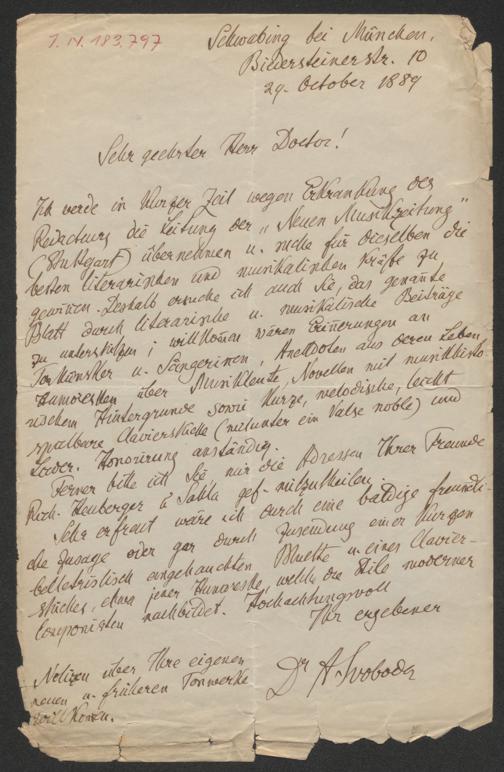 I. N. 183.797
Schwabing bei München,
Biedersteinerstr. 10
29. October 1889
Sehr geehrter Herr Doctor!
Ich werde in kurzer Zeit wegen Erkrankung des
Redacteurs die Leitung der „Neuen Musikzeitung"
(Stuttgart) übernehmen u. suche für dieselben die
besten literarischen und musikalischen Kräfte zu
gewinnen. Deshalb ersuche ich auch Sie, das genannte
Blatt durch literarische u. musikalische Beiträge
zu unterstützen; willkommen wären Erinnerungen an
Tonkünstler u. Sängerinnen, Anekdoten aus deren Leben,
Humoresken über Musikleute, Novellen mit musikhisto-
rischem Hintergrunde sowie kurze, melodische, leicht
spielbare Clavierstücke (mitunter ein Valse noble) und
Lieder. Honorirung anständig.
Ferner bitte ich Sie mir die Adressen Ihrer Freunde
Rich. Heuberger u. Sahla gef. mitzutheilen.
Sehr erfreut wäre ich durch eine baldige freundli-
che Zusage oder gar durch Zusendung einer kurzen
belletristisch angehauchten Bluette u. eines Clavier-
stückes, etwa jener Humoreske, welche die Stile moderner
Componisten nachbildet. Hochachtungsvoll
Ihr ergebener
Dr A. Svoboda
Notizen über Ihre eigenen
neuen u. früheren Tonwerke
willkomen.